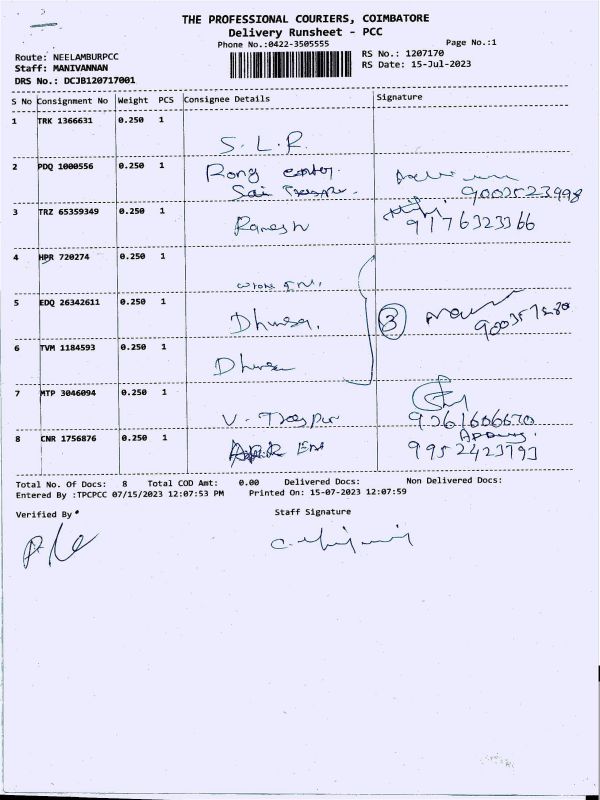 THE PROFESSIONAL COURIERS, COIMBATORE
Delivery Runsheet - PCC
Phone No.:0422-3505555
Page No.:1
Route: NEELAMBURPCC
Staff: MANIVANNAN
DRS No.: DCJB120717001
RS No.: 1207170
RS Date: 15-Jul-2023
S No Consignment No Weight PCS Consignee Details Signature
1 TRK 1366631 0.250 1
S. L. R.
2 PDQ 1000556 0.250 1
Rong center.
Sai
9003523998
3 TRZ 65359349 0.250 1
Ramesh
9176323366
4 HPR 720274 0.250 1
5 EDQ 26342611 0.250 1
3
6 TVM 1184593 0.250 1
7 MTP 3046094 0.250 1
V.
8 CNR 1756876 0.250 1
9952423793
Total No. Of Docs: 8 Total COD Amt: 0.00 Delivered Docs: Non Delivered Docs:
Entered By :TPCPCC 07/15/2023 12:07:53 PM Printed On: 15-07-2023 12:07:59
Verified By
Staff Signature